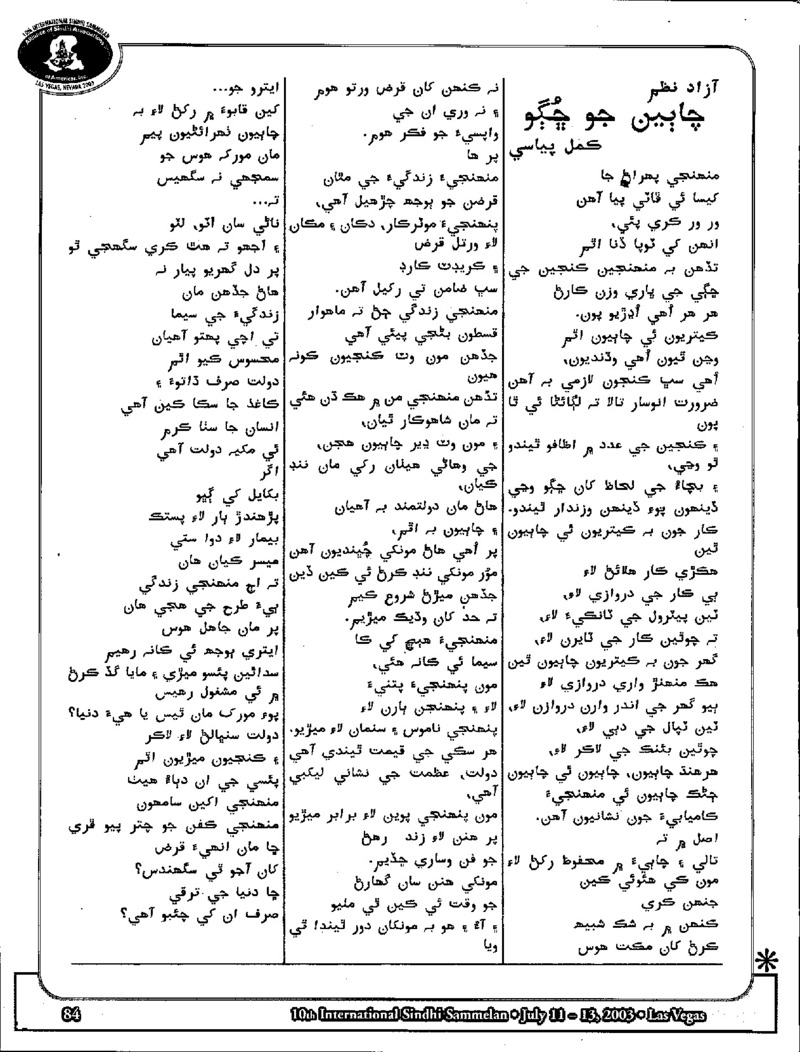 10th INTERNATIONAL SINDHI SAMMELAN
Alliance of Sindhi Associations
of Americas, Inc.
LAS VEGAS, NEVADA 2003
آزاد نظم
چاٻين جو ڇُڳو
ڪمل پياسي
منھنجي پھراڻ جا
کيسا ئي ڦاٽي پيا آهن
ور ور ڪري پئي،
انھن کي ٽوپا ڏنا اٿم
تڏهن بہ منھنجين ڪنجين جي
ڇڳي جي ڀاري وزن ڪارڻ
هر هر اُهي اُڊڙيو پون.
ڪيتريون ئي چاٻيون اٿم
وڃن ٿيون اُهي وڌنديون،
اُهي سڀ ڪنجون لازمي بہ آهن
ضرورت انوسار تالا تہ لڳائڻا ئي ٿا
پون
۽ ڪنجين جي عدد ۾ اظافو ٿيندو
ٿو وڃي،
۽ بچاءَ جي لحاظ کان ڇڳو وڃي
ڏينھون پوءِ ڏينھن وزندار ٿيندو.
ڪار جون بہ ڪيتريون ئي چاٻيون
ٿين
هڪڙي ڪار هلائڻ لاءِ
ٻي ڪار جي دروازي لاءِ،
ٽين پيٽرول جي ٽانڪيءَ لاءِ،
تہ چوٿين ڪار جي ٽايرن لاءِ،
گھر جون بہ ڪيتريون چاٻيون ٿين
هڪ منھنڙ واري دروازي لاءِ
ٻيو گھر جي اندر وارن دروازن لاءِ،
ٽين ٽپال جي دٻي لاءِ،
چوٿين بئنڪ جي لاڪر لاءِ،
هرهنڌ چاٻيون، چاٻيون ئي چاٻيون
ڄڻڪ چاٻيون ئي منھنجيءَ
ڪاميابيءَ جون نشانيون آهن.
اصل ۾ تہ
تالي ۽ چاٻيءَ ۾ محفوظ رکڻ لاءِ
مون کي هئوئي ڪين
جنھن ڪري
ڪنھن ۾ بہ شڪ شبيھ
ڪرڻ کان مڪت هوس
نہ ڪنھن کان قرض ورتو هوم
۽ نہ وري ان جي
واپسيءَ جو فڪر هوم.
پر ها
منھنجيءَ زندگيءَ جي مٿان
قرضن جو ٻوجھ چڙهيل آهي،
پنھنجيءَ موٽرڪار، دڪان ۽ مڪان
لاءِ ورتل قرض
۽ ڪريڊٽ ڪارڊ
سڀ ضامن تي رکيل آهن.
منھنجي زندگي ڄڻ تہ ماهوار
قسطون بڻجي پيئي آهي
جڏهن مون وٽ ڪنجيون ڪونہ
هيون
تڏهن منھنجي من ۾ هڪ ڌن هئي
تہ مان شاهوڪار ٿيان،
۽ مون وٽ ڍير چاٻيون هجن،
جي وهاڻي هيٺان رکي مان ننڊ
ڪيان،
هاڻ مان دولتمند بہ آهيان
۽ چاٻيون بہ اٿم،
پر اُهي هاڻ مونکي چُڀنديون آهن
مؤر مونکي ننڊ ڪرڻ ئي ڪين ڏين
جڏهن ميڙڻ شروع ڪيم
تہ حد کان وڌيڪ ميڙيم.
منھنجيءَ هٻڇ کي ڪا
سيما ئي ڪانہ هئي،
مون پنھنجيءَ پتنيءَ
لاءِ ۽ پنھنجن ٻارن لاءِ
پنھنجي ناموس ۽ سنمان لاءِ ميڙيو.
هر سڪي جي قيمت ٿيندي آهي
دولت، عظمت جي نشاني ليکبي
آهي،
مون پنھنجي پوين لاءِ برابر ميڙيو
پر هنن لاءِ زند رهڻ
جو فن وساري ڇڏيم.
مونکي هنن سان گھارڻ
جو وقت ئي ڪين ٿي مليو
۽ آءٌ ۽ هو بہ مونکان دور ٿيندا ٿي
ويا
ايترو جو...
ڪين قابوءَ ۾ رکڻ لاءِ بہ
چاٻيون ٺھرائڻيون پيم
مان مورکہ هوس جو
سمجھي نہ سگھيس
تہ...
ناڻي سان اٽو، لٽو
۽ اجھو تہ هٿ ڪري سگھجي ٿو
پر دل گھريو پيار نہ
هاڻ جڏهن مان
زندگيءَ جي سيما
تي اچي پھتو آهيان
محسوس ڪيو اٿم
دولت صرف ڌاتوءَ ۽
ڪاغذ جا سڪا ڪين آهي
انسان جا سٺا ڪرم
ئي مکيہ دولت آهي
اگر
بکايل کي ڳڀو
پڙهندڙ ٻار لاءِ پستڪ
بيمار لاءِ دوا ستي
ميسر ڪيان هان
تہ اڄ منھنجي زندگي
ٻيءَ طرح جي هجي هان
پر مان جاهل هوس
ايتري ٻوجھ ئي ڪانہ رهيم
سدائين پئسو ميڙي ۽ مايا گڏ ڪرڻ
۾ ئي مشغول رهيس
پوءِ مورک مان ٿيس يا هيءَ دنيا؟
دولت سنڀالڻ لاءِ لاڪر
۽ ڪنجيون ميڙيون اٿم
پئسي جي ان دٻاءَ هيٺ
منھنجي اکين سامھون
منھنجي ڪفن جو چتر پيو ڦري
ڇا مان انھيءَ قرض
کان آجو ٿي سگھندس؟
ڇا دنيا جي ترقي
صرف ان کي چئبو آهي؟
84
10th International Sindhi Sammelan • July 11 – 13, 2003 • Las Vegas